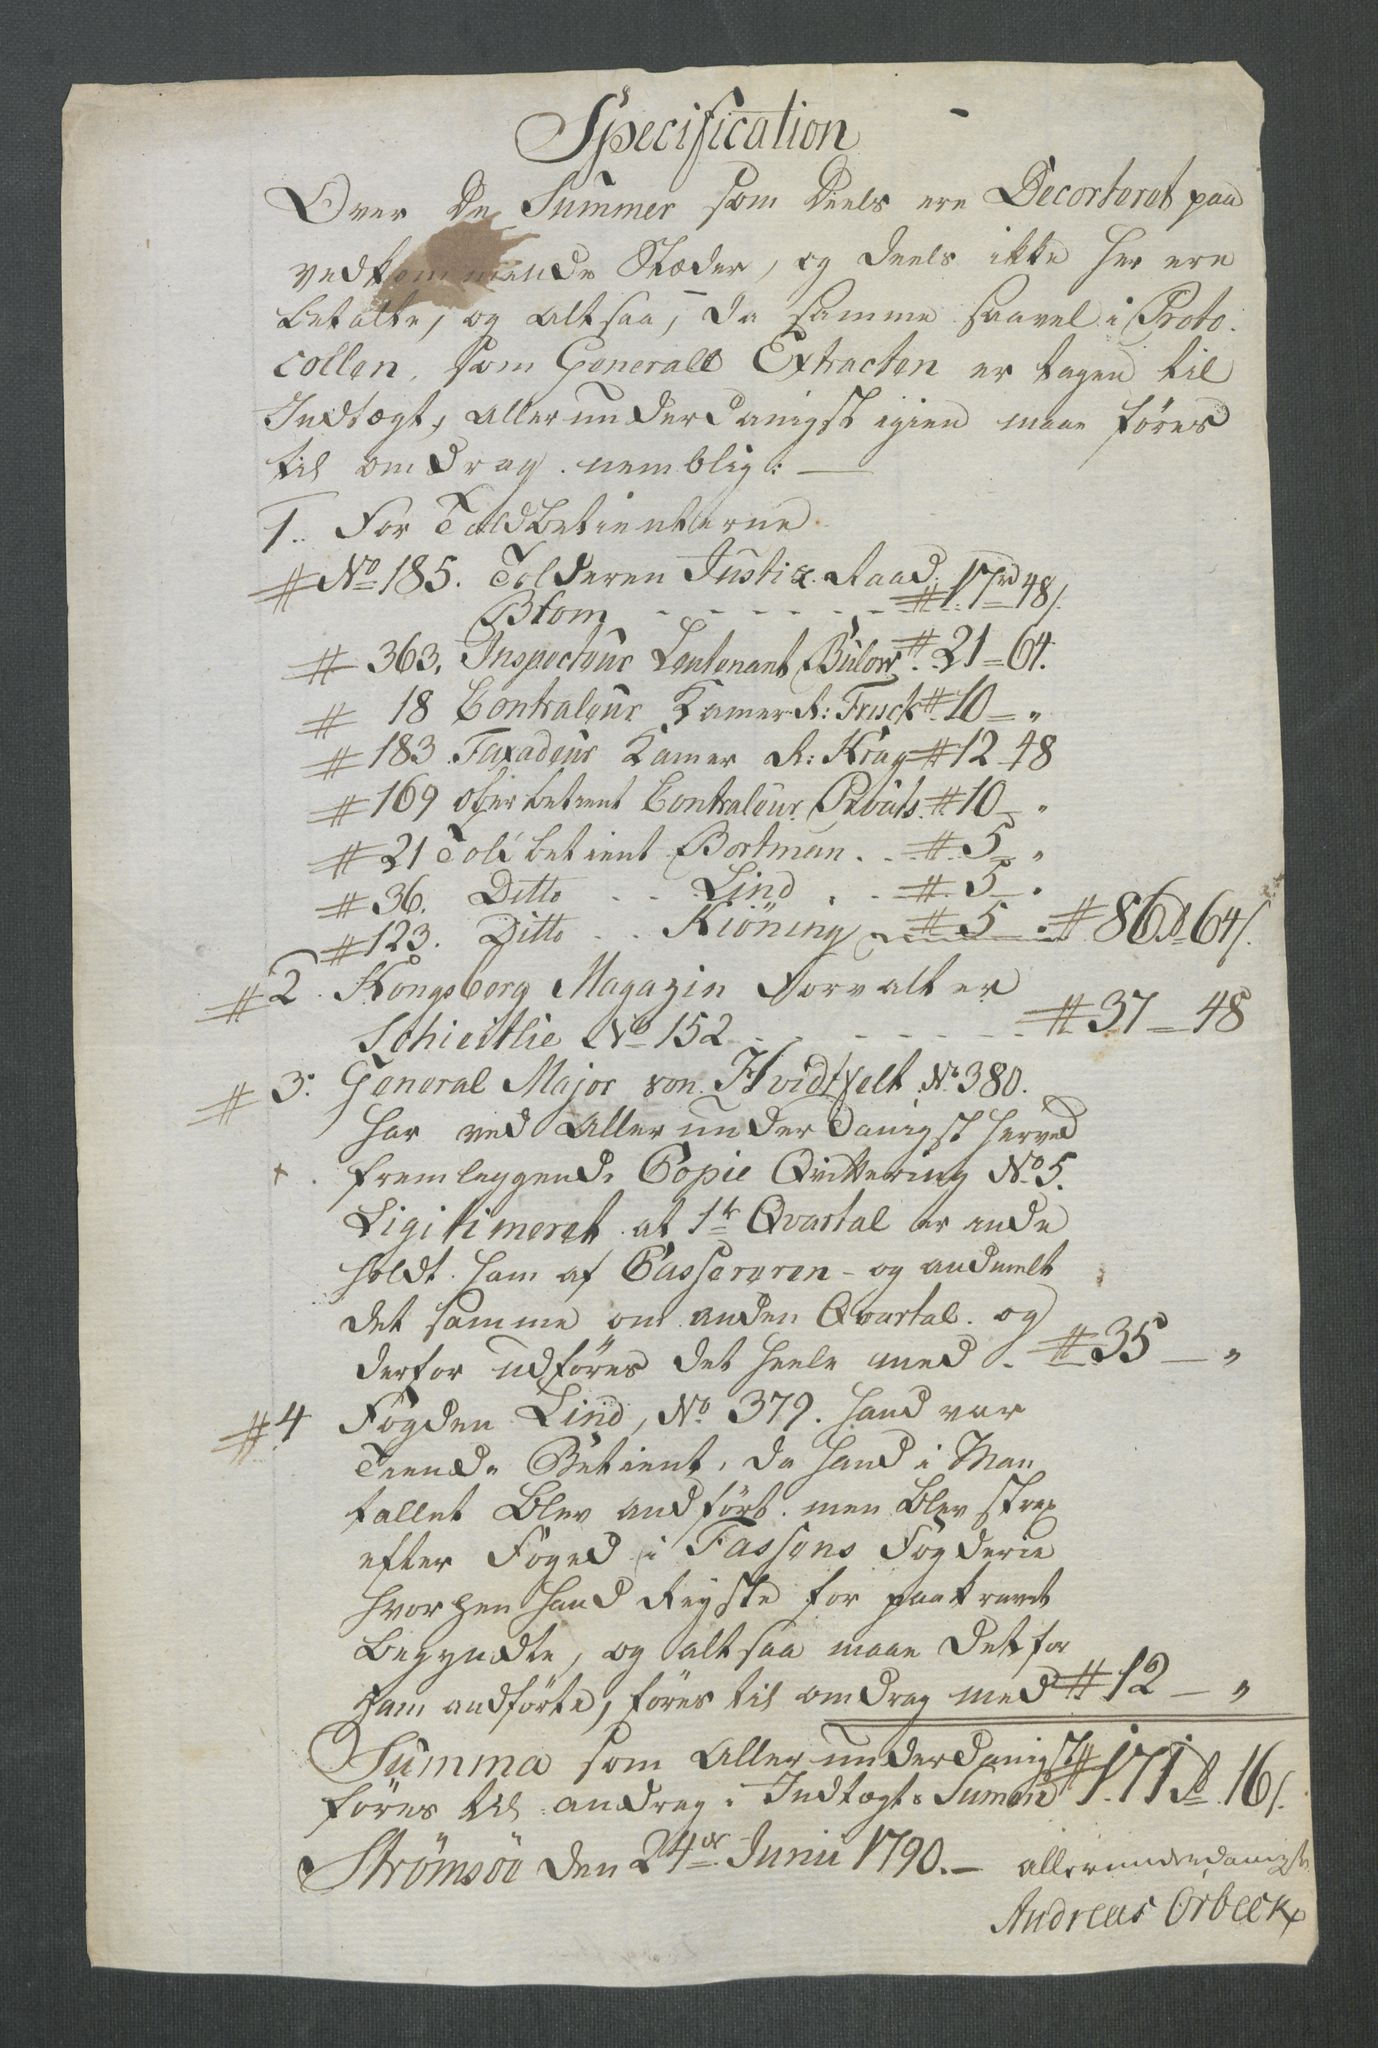 Specification
Over de Summer som deels ere Decorteret paa
vedkommende Stæder, og deels ikke her ere
betalte, og altsaa, da samme saavel i Proto-
collen, som Generall Extracten er tagen til
Indtægt, allerunderdanigst igien maae føres
til omdrag. nemblig: —
1. For Toldbetienterne.
# No 185. Tolderen Justiz Raad
Blom - - - - - - # 17rd 48/.
# 363. Inspecteur Leutenant Bülow # 21 = 64.
# 18 Contraleur Kamer R: Frisck # 10 — "
# 183 Taxadeur Kamer R: Krag # 12 48
# 169 oberbetient Contraleur # 10 — "
# 21 Toldbetient Bortman . . # 5 — "
# 36. Ditto . . Lind . . # 5 — .
# 123. Ditto . . Kiöning # 5 . # 86rd 64/.
# 2. Kongsberg Magazin Forvalter
Schiertlie No 152 - - - - - - # 37 — 48
# 3. General Major von Hvidtfelt No 380.
har ved allerunderdanigst herved
+ . fremleggende Copie Qvittering No 5.
Ligitimeret at 1te Qvartal er inde
holdt ham af Cassereren - og andmelt
det samme om anden Qvartal. og
derfor udføres det heele med - # 35 — "
# 4 Fogden Lind, No 379. hand var
Tiende Betient, da hand i Man
tallet blev andført. men blev strax
efter Foged i Fassens Fogderie
hvorhen hand Reyste før paakravet
begyndte, og altsaa maae det for
ham andførte, føres til omdrag med # 12 — "
Summa som allerunderdanigst # 171rd 16/.
føres til andrag i Indtægts Sumen
Strömsöe den 24de Junii 1790. — allerunderdanigst
Andreas Orbeck